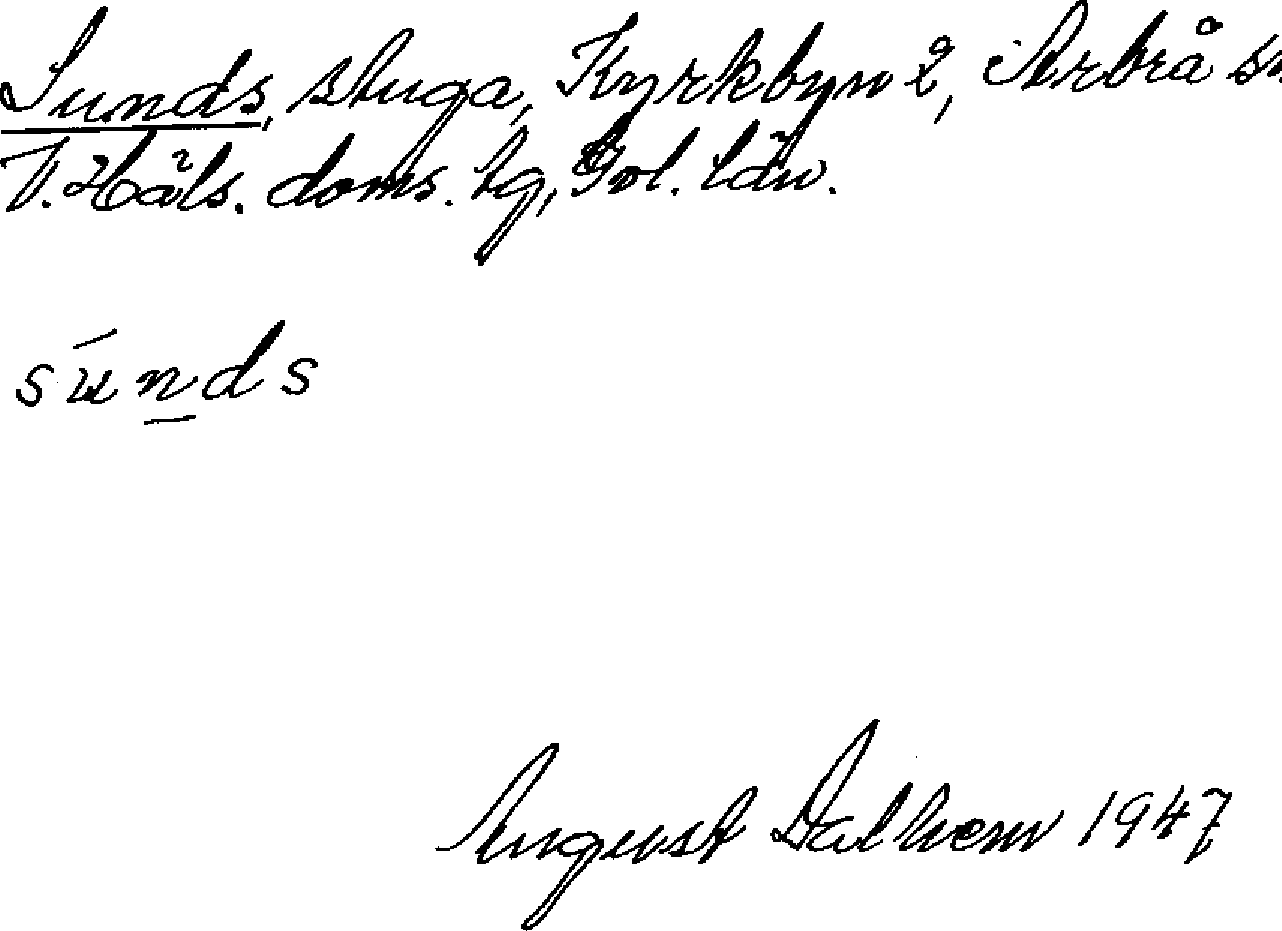 Sunds, stuga, Kyrkbyn 2, Arbrå sn
V. Häls. doms. hg, Gvl. län.
súnds
August Dalhem 1947